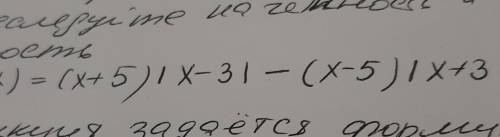 следуйте на четность и
ость
x) = (x+5) | x-3 | - (x-5) | x+3
кция задаётся форму